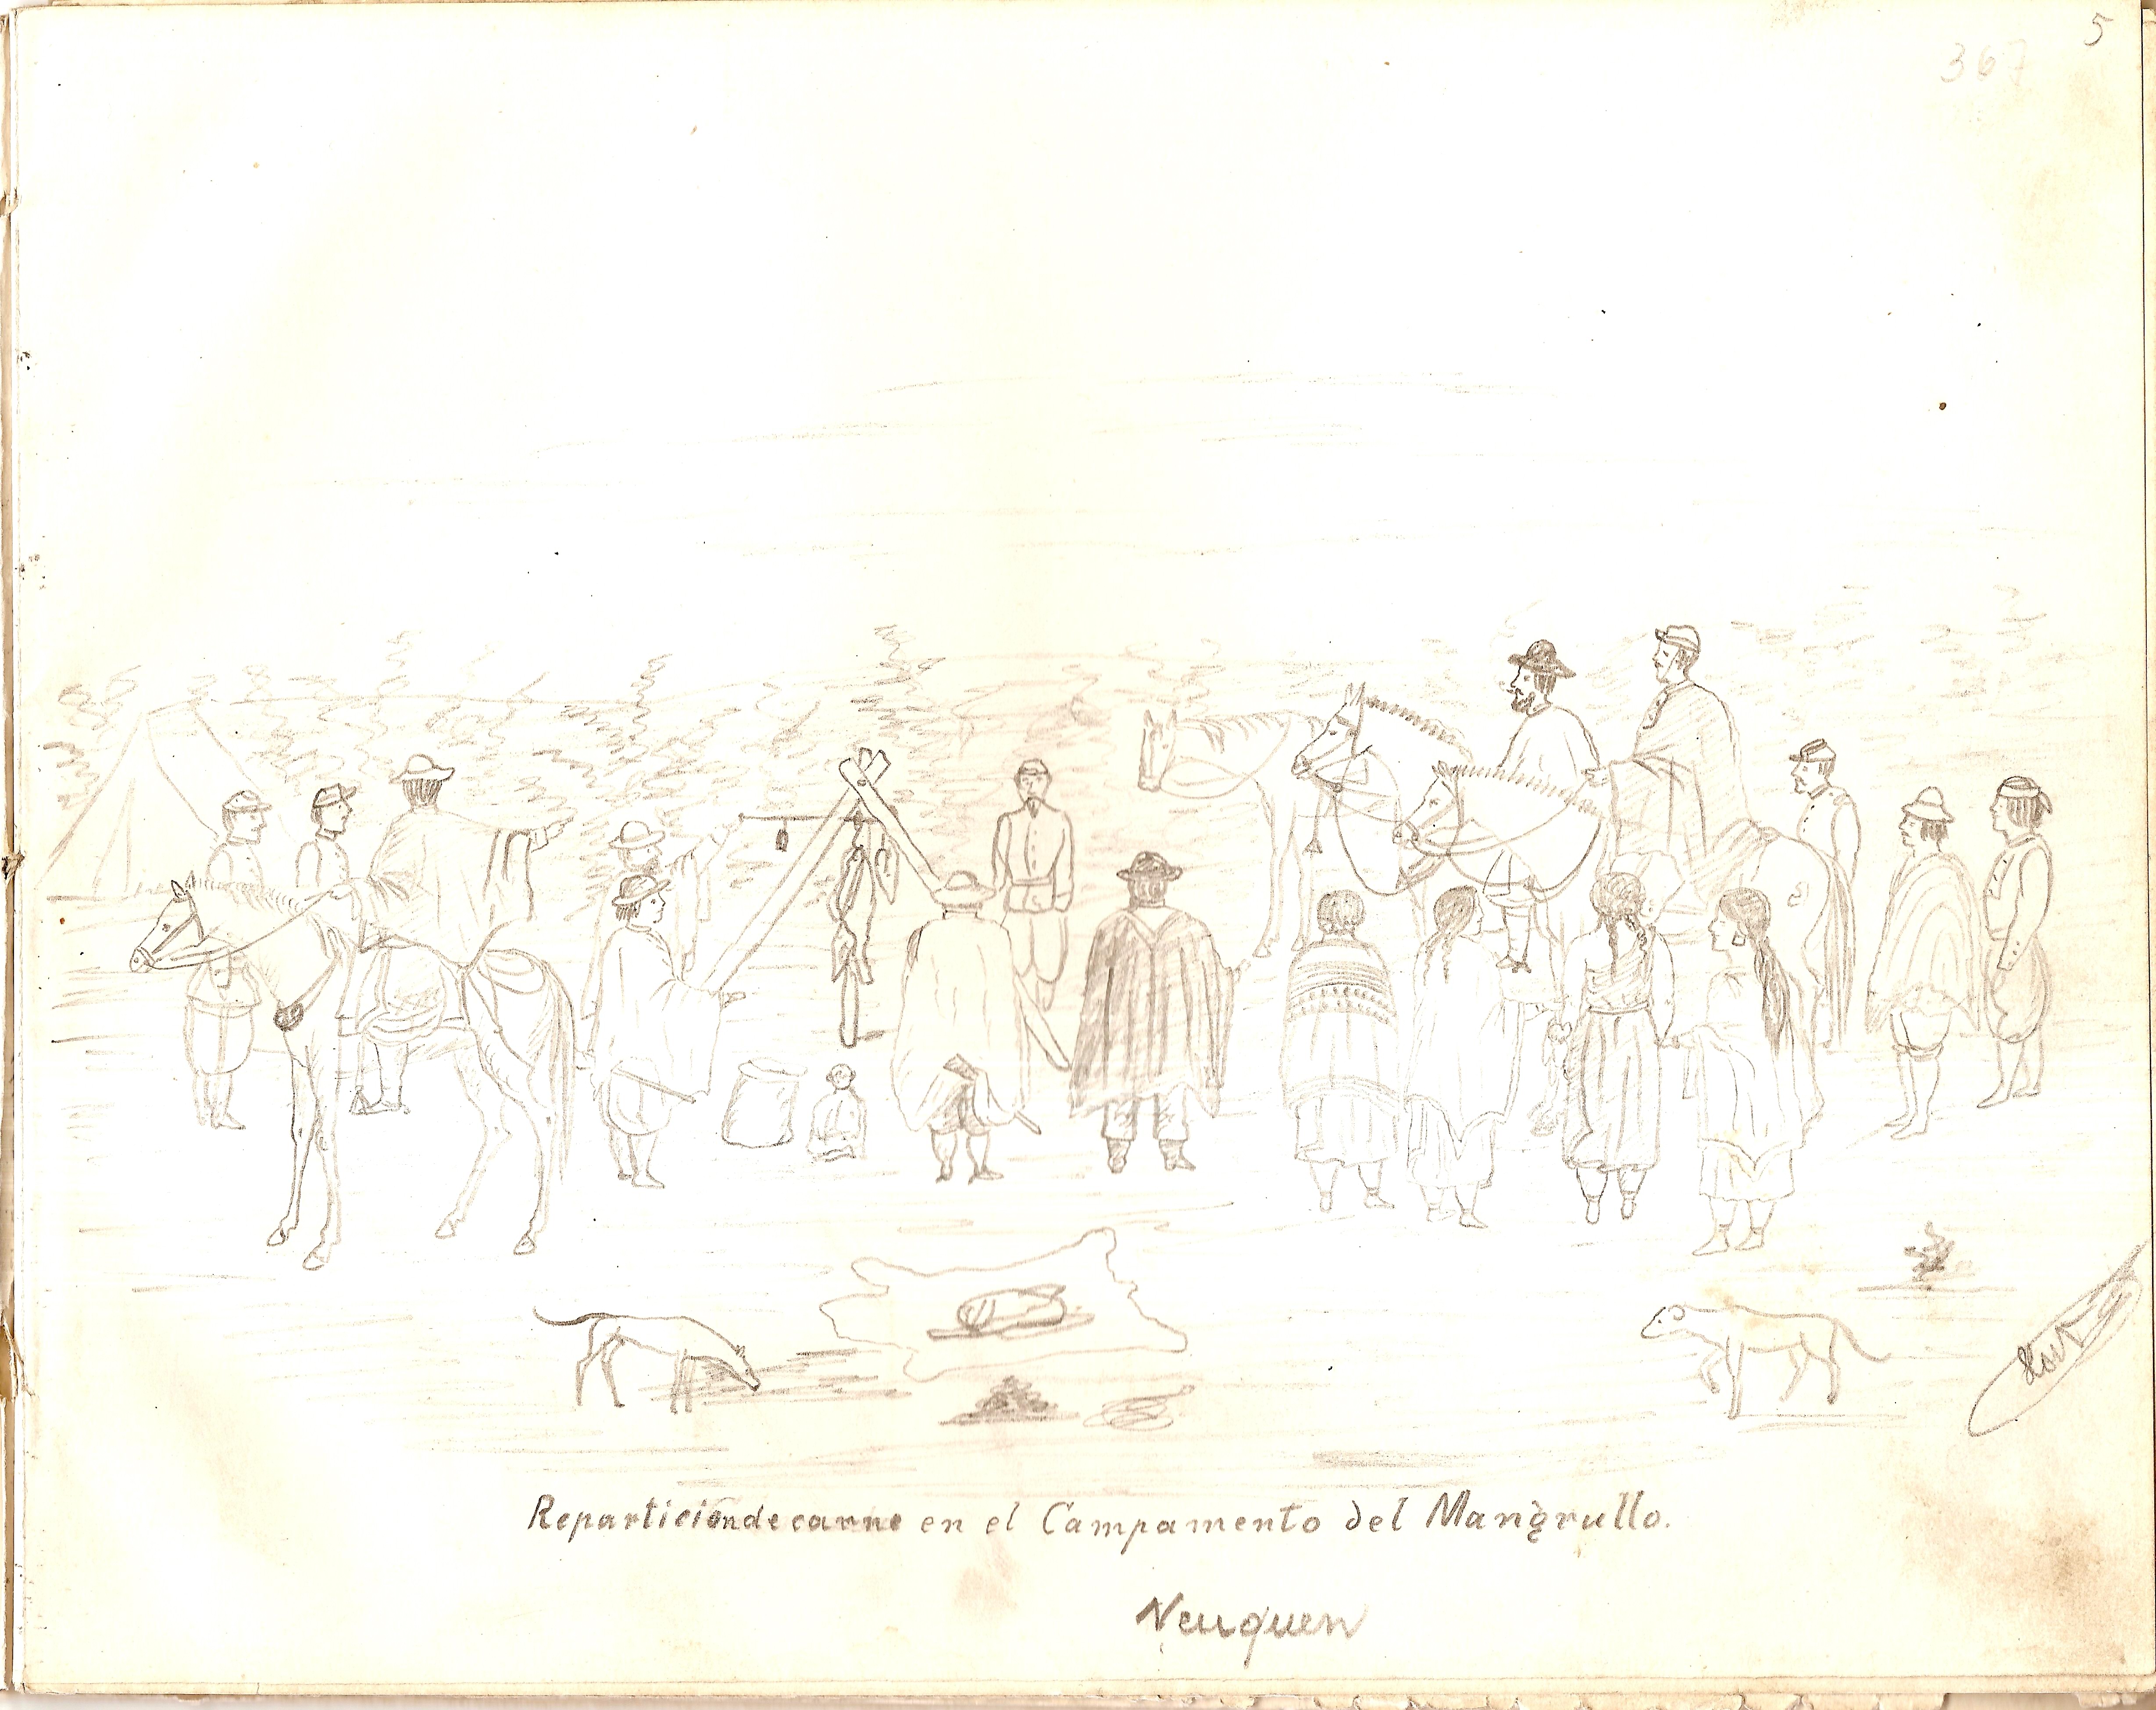 5
367
Repartición de carne en el Campamento del Mangrullo.
Neuquen